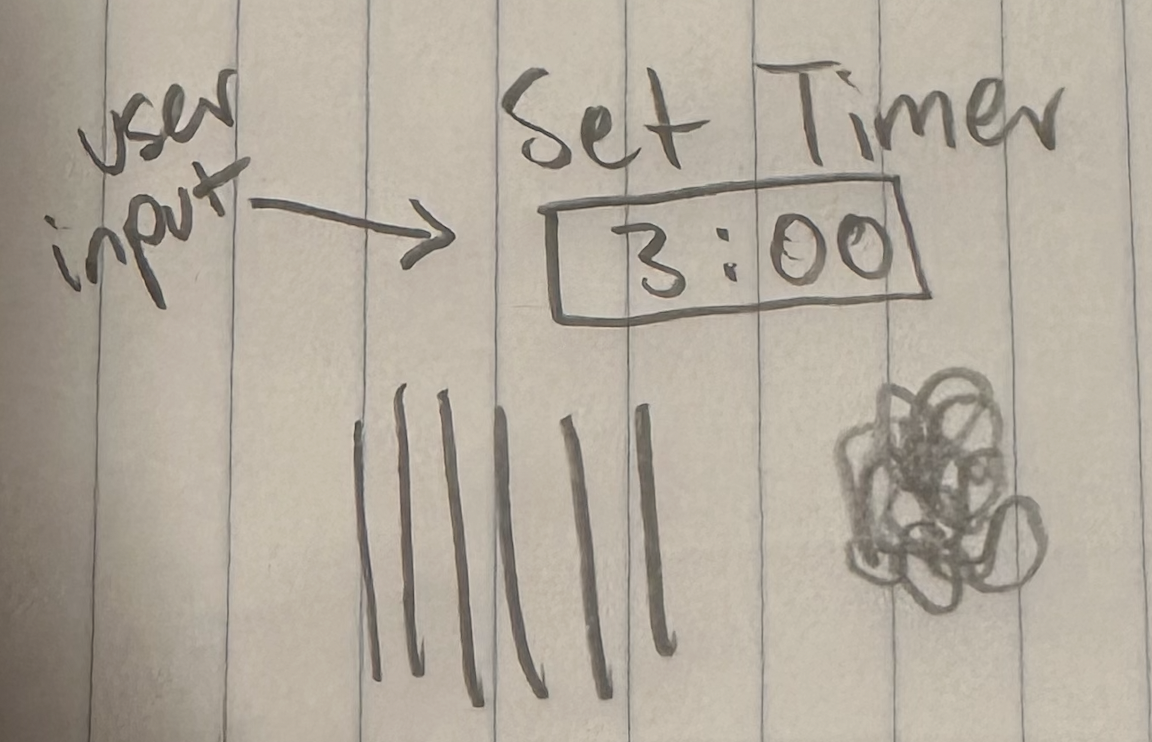 user
input
Set Timer
3:00